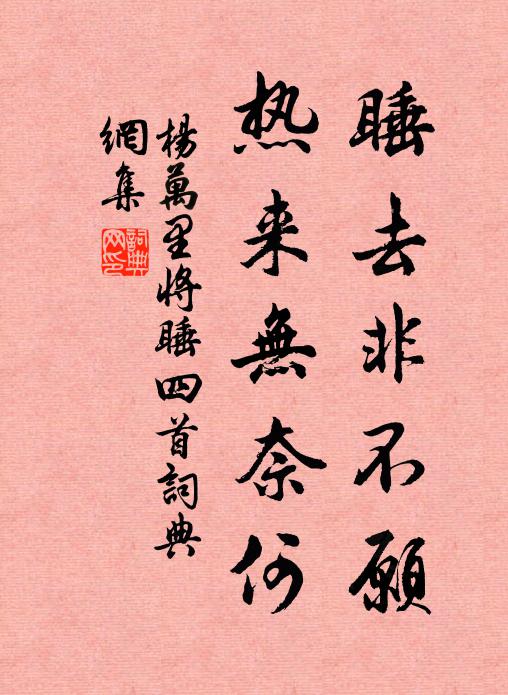 睡去非不願
热来無奈何
楊萬里将睡四首詞典
網集
詞典
网印